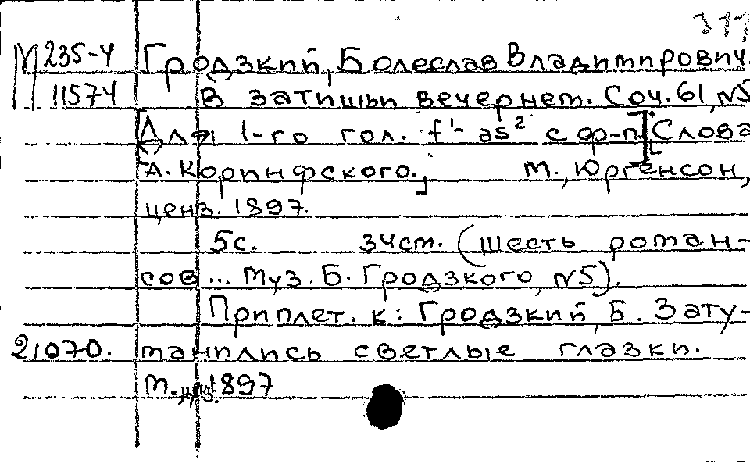 311
М 235-4 Гродзкий, Болеслав Владимирович.
11574 В затишьи вечернем. Соч. 61, №5
[Для 1-го гол. f'- as² с ф-п.] [Слова
А. Коринфского.] М., Юргенсон,
ценз. 1897.
5с. 34см. (Шесть роман-
сов... Муз. Б. Гродзкого, №5).
Приплет. к: Гродзкий, Б. Зату-
21070. манились светлые глазки.
М., ценз. 1897